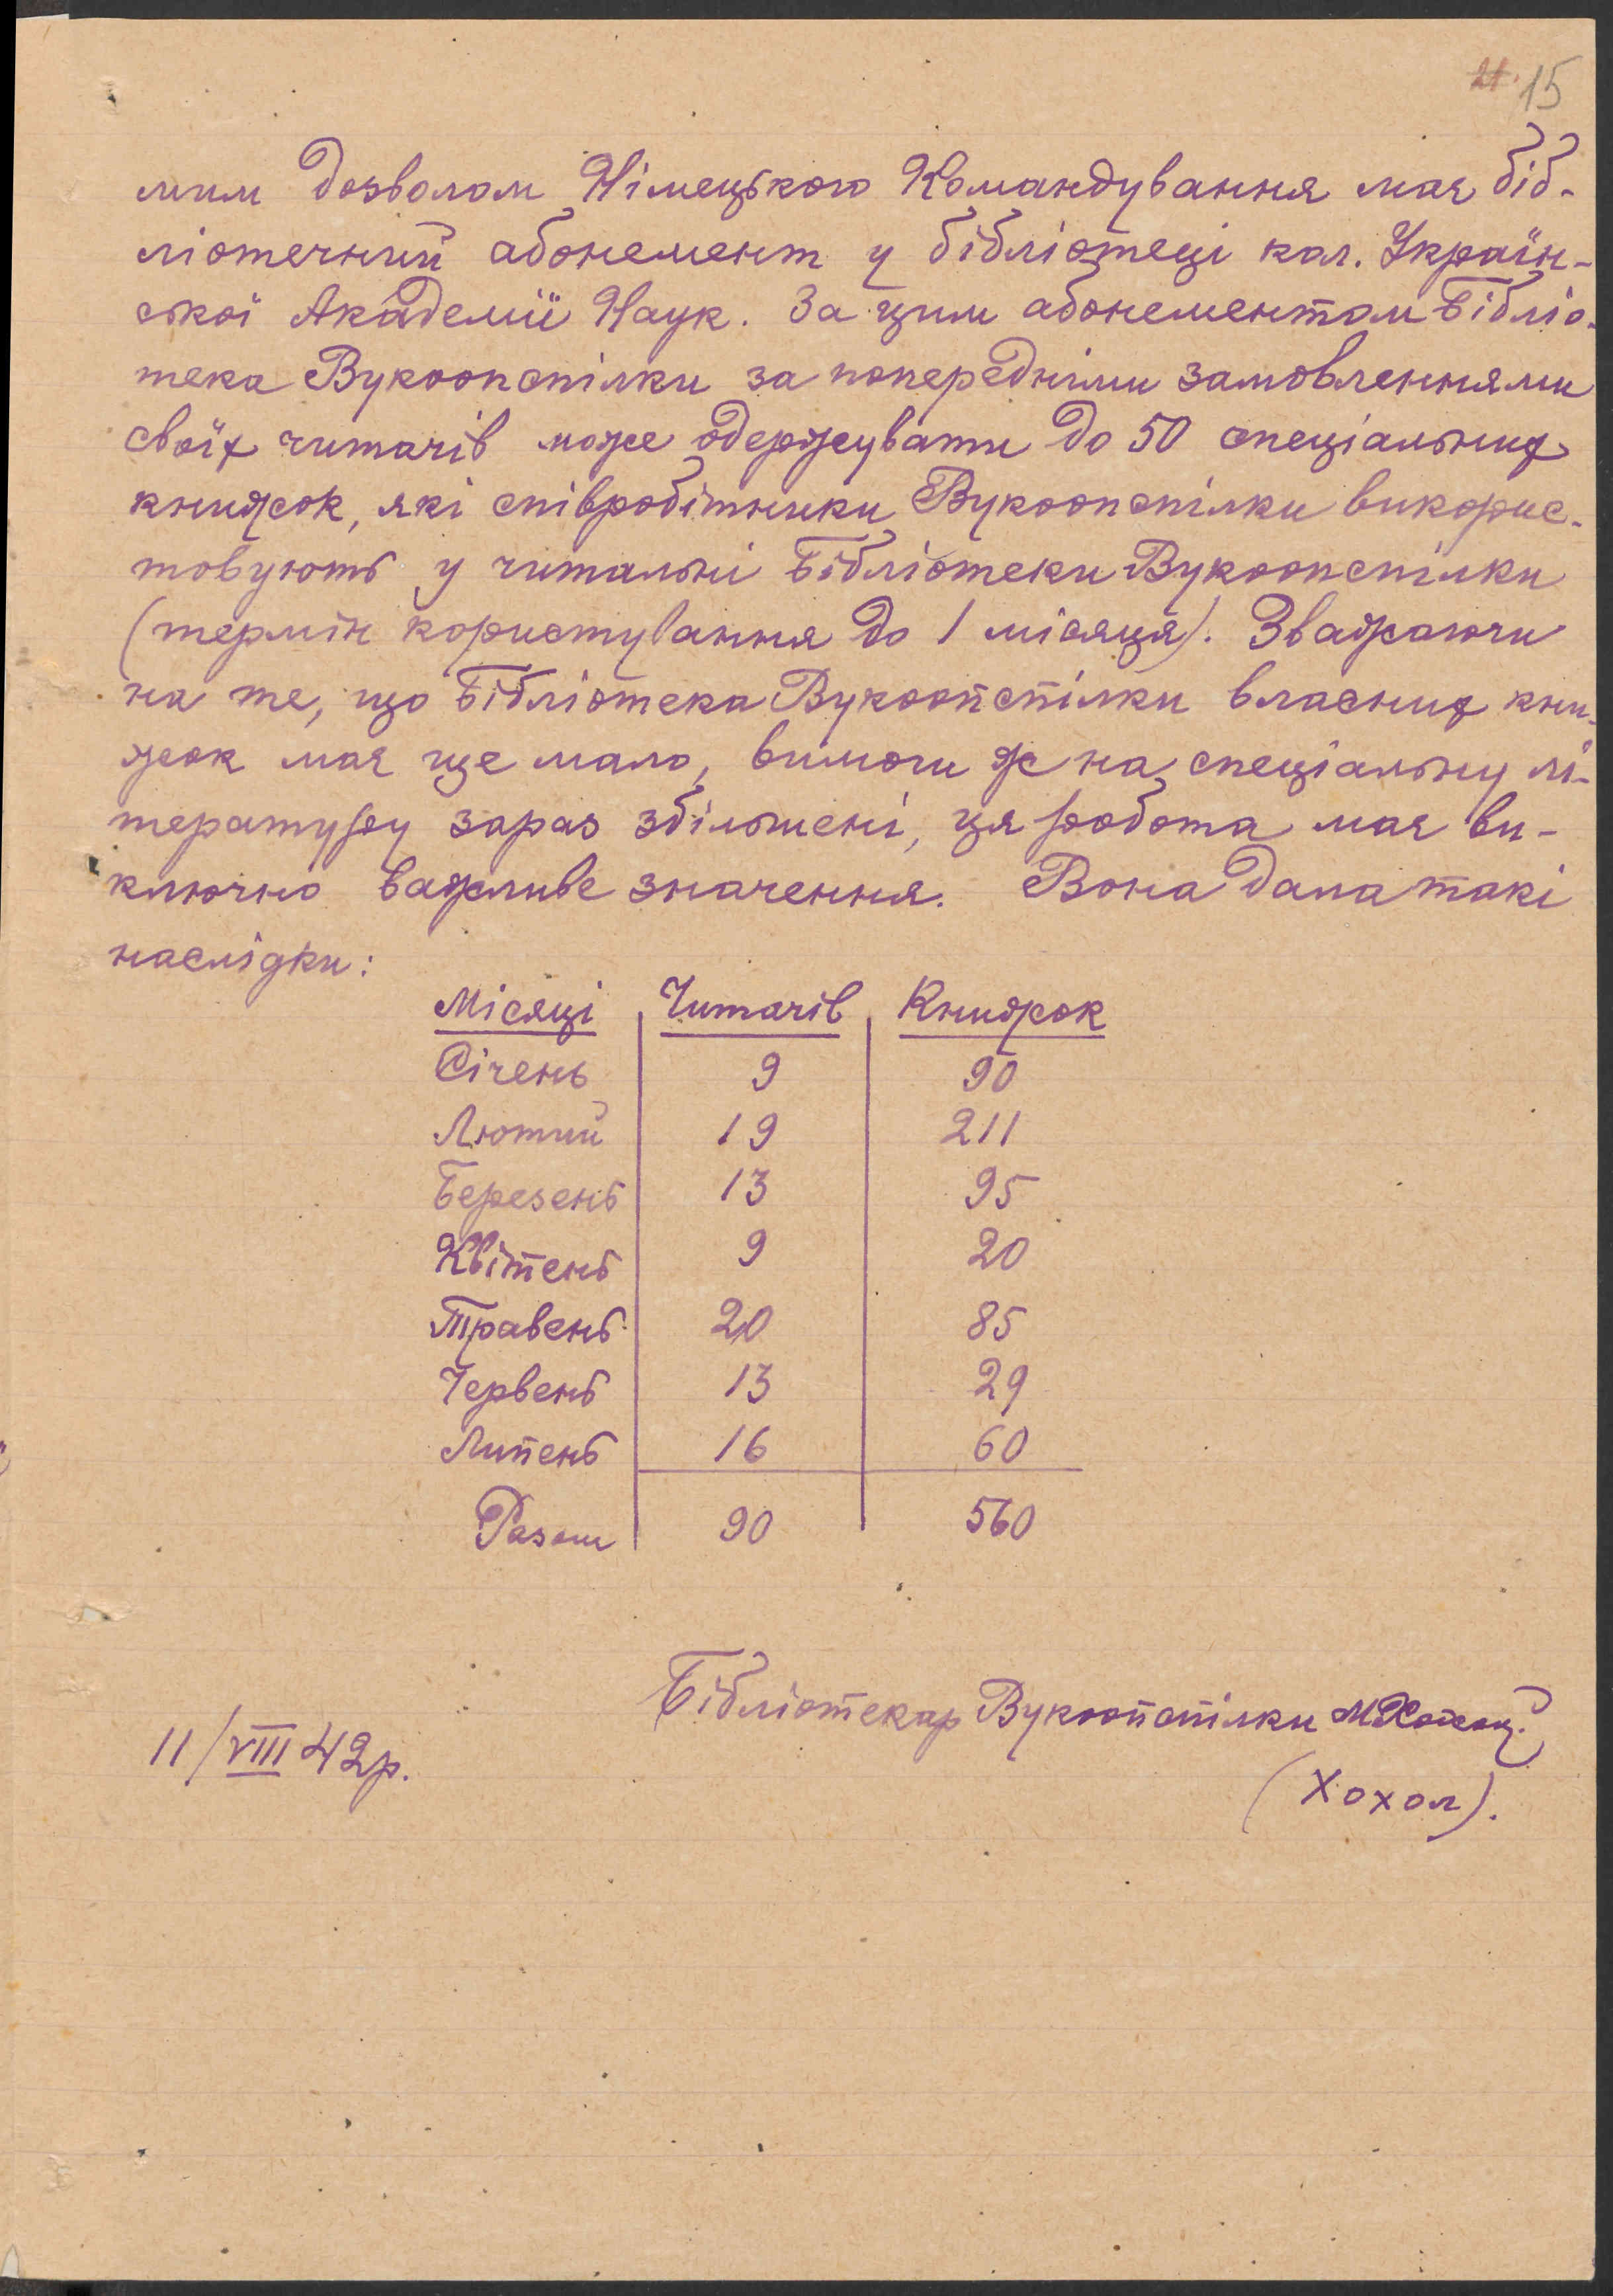 21. 15
мим дозволом Німецького Командування має біб-
ліотечний абонемент у бібліотеці кол. Україн-
ської Академії Наук. За цим абонементом Бібліо-
тека Вукоопспілки за попередніми замовленнями
своїх читачів може одержувати до 50 спеціальних
книжок, які співробітники Вукоопспілки викорис-
товують у читальні Бібліотеки Вукоопспілки
(термін користування до 1 місяця). Зважаючи
на те, що Бібліотека Вукоопспілки власних кни-
жок має ще мало, вимоги ж на спеціальну лі-
тературу зараз збільшені, ця робота має ви-
ключно важливе значення. Вона дала такі
наслідки:
Місяці Читачів Книжок
Січень 9 90
Лютий 19 211
Березень 13 95
Квітень 9 20
Травень 20 85
Червень 13 29
Липень 16 60
Разом 90 560
Бібліотекар Вукоопспілки
11/VIII 42р.
(Хохол).